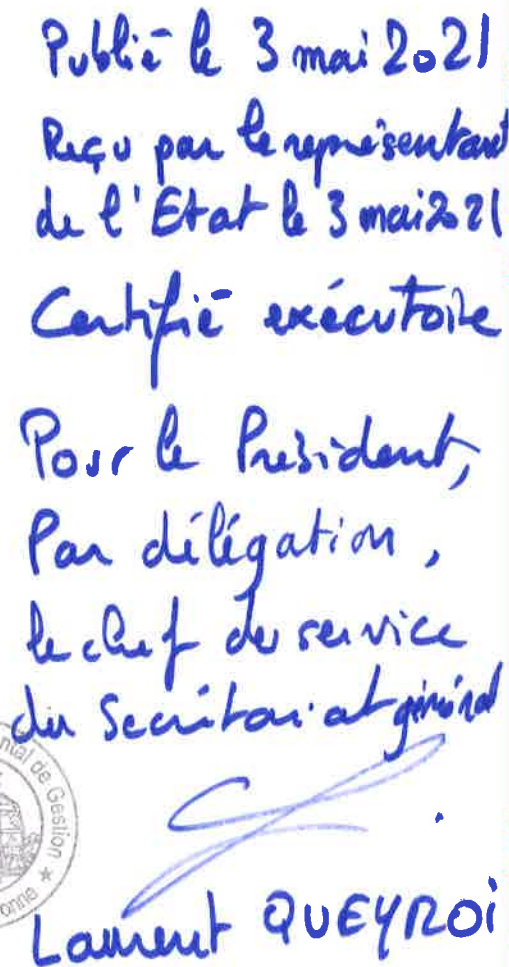 Publié le 3 mai 2021
Reçu par le représentant
de l'Etat le 3 mai 2021
Certifié exécutoire
Pour le Président,
Par délégation,
le chef de service
du Secrétariat général
ntal de Gestion *
onne
Laurent QUEYROI